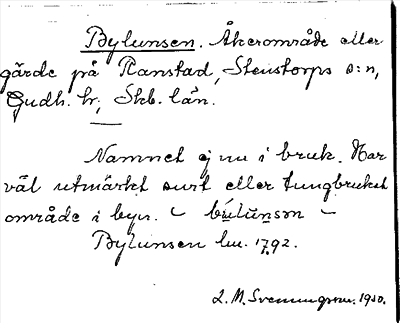 Bylunsen. Åkerområde eller
gärde på Ranstad, Stenstorps s:n,
Gudh. hr, Skb. län.
Namnet ej nu i bruk. Har
väl utmärkt surt eller tungbruket
område i byn. – býlŭnsǝn –
Bylunsen lm. 1792.
L. M. Svenungsson. 1930.